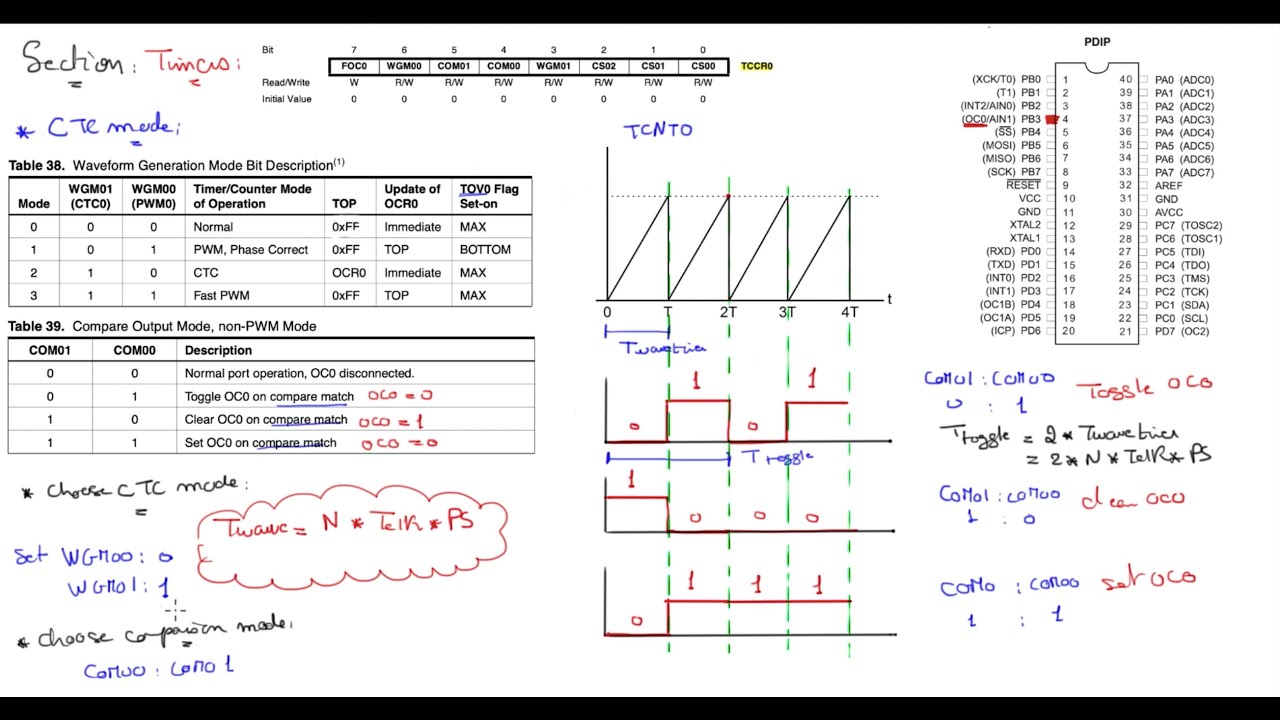 Section: Timers:
Bit 7 6 5 4 3 2 1 0
FOC0 WGM00 COM01 COM00 WGM01 CS02 CS01 CS00 TCCR0
Read/Write W R/W R/W R/W R/W R/W R/W R/W
Initial Value 0 0 0 0 0 0 0 0
* CTC mode:
Table 38. Waveform Generation Mode Bit Description(1)
Mode WGM01 (CTC0) WGM00 (PWM0) Timer/Counter Mode of Operation TOP Update of OCR0 TOV0 Flag Set-on
0 0 0 Normal 0xFF Immediate MAX
1 0 1 PWM, Phase Correct 0xFF TOP BOTTOM
2 1 0 CTC OCR0 Immediate MAX
3 1 1 Fast PWM 0xFF TOP MAX
Table 39. Compare Output Mode, non-PWM Mode
COM01 COM00 Description
0 0 Normal port operation, OC0 disconnected.
0 1 Toggle OC0 on compare match OC0 = 0
1 0 Clear OC0 on compare match OC0 = 1
1 1 Set OC0 on compare match OC0 = 0
* choose CTC mode:
Twave = N * Tclk * PS
Set WGM00: 0
WGM01: 1
* choose comparison mode:
COM00: COM01
TCNT0
t
0 T 2T 3T 4T
0 1 0 1
T toggle
1 0 0 0
0 1 1 1
PDIP
(XCK/T0) PB0 1 40 PA0 (ADC0)
(T1) PB1 2 39 PA1 (ADC1)
(INT2/AIN0) PB2 3 38 PA2 (ADC2)
(OC0/AIN1) PB3 4 37 PA3 (ADC3)
(SS) PB4 5 36 PA4 (ADC4)
(MOSI) PB5 6 35 PA5 (ADC5)
(MISO) PB6 7 34 PA6 (ADC6)
(SCK) PB7 8 33 PA7 (ADC7)
RESET 9 32 AREF
VCC 10 31 GND
GND 11 30 AVCC
XTAL2 12 29 PC7 (TOSC2)
XTAL1 13 28 PC6 (TOSC1)
(RXD) PD0 14 27 PC5 (TDI)
(TXD) PD1 15 26 PC4 (TDO)
(INT0) PD2 16 25 PC3 (TMS)
(INT1) PD3 17 24 PC2 (TCK)
(OC1B) PD4 18 23 PC1 (SDA)
(OC1A) PD5 19 22 PC0 (SCL)
(ICP) PD6 20 21 PD7 (OC2)
COM01: COM00 Toggle OC0
0 : 1
Ttoggle = 2 *
= 2 * N * Tclk * PS
COM01: COM00 clear OC0
1 : 0
COM0 : COM00 set OC0
1 : 1